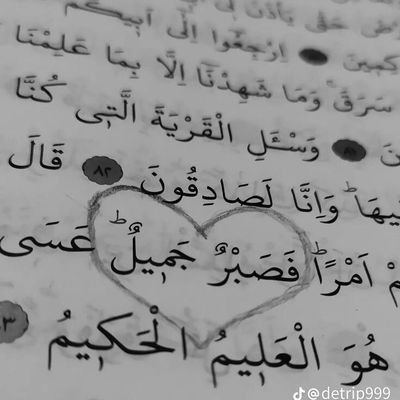 رْضَ حَتّٰى يَأْذَنَ ل۪ٓي
كِم۪ينَ ﴿﴾ اِرْجِعُٓوا اِلٰٓى اَب۪يكُمْ
سَرَقَۚ وَمَا شَهِدْنَٓا اِلَّا بِمَا عَلِمْنَا
نَ ﴿٨١﴾ وَسْـَٔلِ الْقَرْيَةَ الَّت۪ي كُنَّا
ف۪يهَاۜ وَاِنَّا لَصَادِقُونَ ﴿٨٢﴾ قَالَ
مْ اَمْرًاۜ فَصَبْرٌ جَم۪يلٌۜ عَسَى
هُوَ الْعَل۪يمُ الْحَك۪يمُ ﴿٨٣﴾
@detrip999